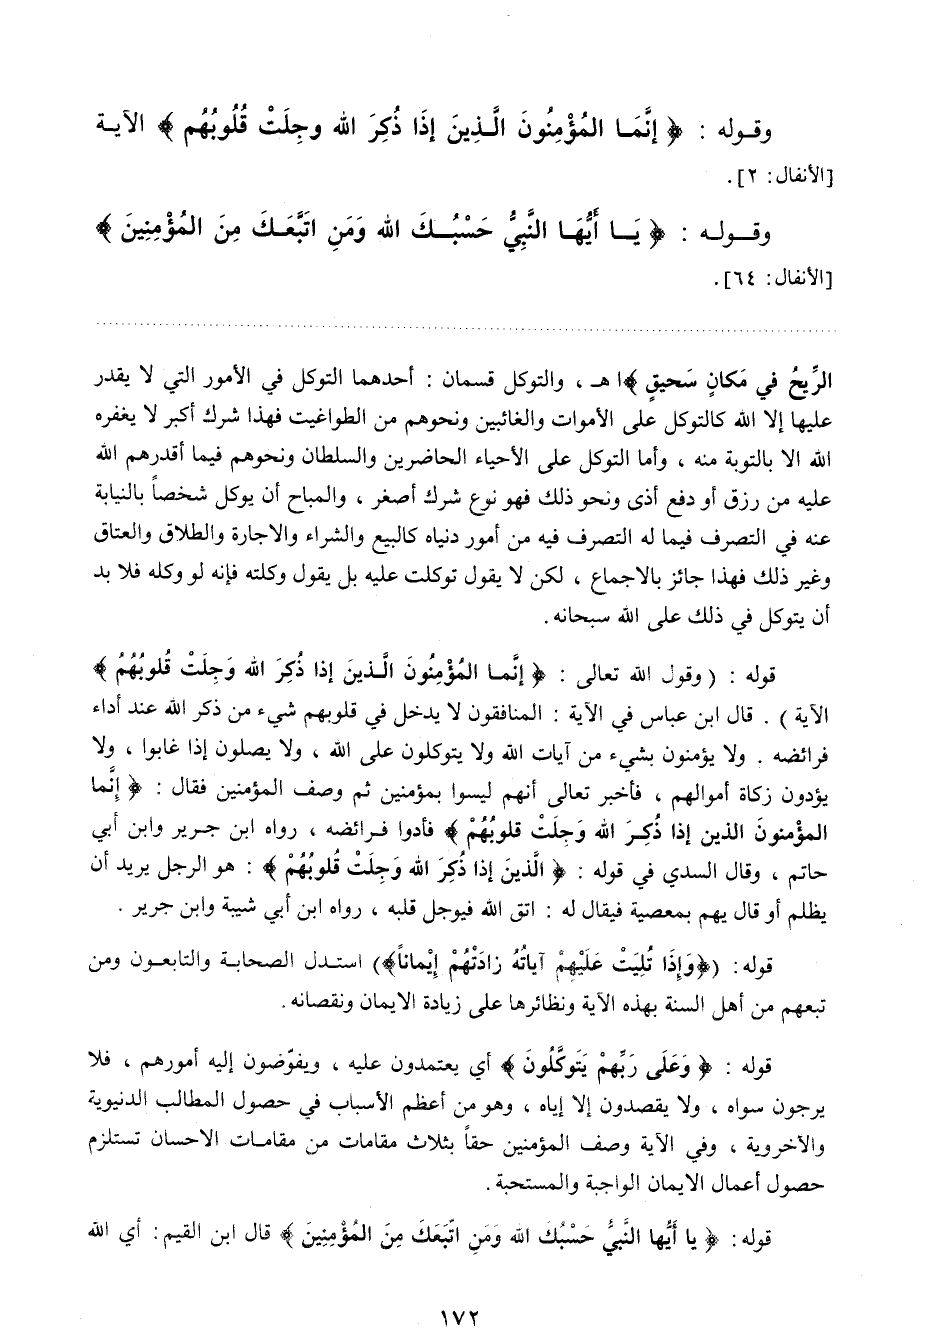 وقوله : ﴿ إنَّمَا المُؤْمِنُونَ الَّذِينَ إذَا ذُكِرَ الله وجِلَتْ قُلُوبُهُم ﴾ الآية
[الأنفال: ٢].
وقوله : ﴿ يَا أَيُّهَا النَّبِيُّ حَسْبُكَ الله وَمَنِ اتَّبَعَكَ مِنَ المُؤْمِنِينَ ﴾
[الأنفال: ٦٤].
الرِّيحُ في مَكانٍ سَحيقٍ ﴾ا هـ ، والتوكل قسمان : أحدهما التوكل في الأمور التي لا يقدر
عليها إلا الله كالتوكل على الأموات والغائبين ونحوهم من الطواغيت فهذا شرك أكبر لا يغفره
الله الا بالتوبة منه ، وأما التوكل على الأحياء الحاضرين والسلطان ونحوهم فيما أقدرهم الله
عليه من رزق أو دفع أذى ونحو ذلك فهو نوع شرك أصغر ، والمباح أن يوكل شخصاً بالنيابة
عنه في التصرف فيما له التصرف فيه من أمور دنياه كالبيع والشراء والاجارة والطلاق والعتاق
وغير ذلك فهذا جائز بالاجماع ، لكن لا يقول توكلت عليه بل يقول وكلته فإنه لو وكله فلا بد
أن يتوكل في ذلك على الله سبحانه.
قوله : ( وقول الله تعالى : ﴿ إنَّما المُؤْمِنُونَ الَّذينَ إذا ذُكِرَ الله وَجِلَتْ قُلوبُهُمُ ﴾
الآية ) . قال ابن عباس في الآية : المنافقون لا يدخل في قلوبهم شيء من ذكر الله عند أداء
فرائضه . ولا يؤمنون بشيء من آيات الله ولا يتوكلون على الله ، ولا يصلون إذا غابوا ، ولا
يؤدون زكاة أموالهم ، فأخبر تعالى أنهم ليسوا بمؤمنين ثم وصف المؤمنين فقال : ﴿ إنَّما
المؤمنونَ الذين إذا ذُكِرَ الله وَجِلَتْ قلوبُهُمْ ﴾ فأدوا فرائضه ، رواه ابن جرير وابن أبي
حاتم ، وقال السدي في قوله : ﴿ الَّذينَ إذا ذُكِرَ الله وَجِلَتْ قُلوبُهُمْ ﴾ : هو الرجل يريد أن
يظلم أو قال يهم بمعصية فيقال له : اتق الله فيوجل قلبه ، رواه ابن أبي شيبة وابن جرير .
قوله: (﴿وَإذَا تُلِيَتْ عَلَيْهِمْ آياتُهُ زادَتْهُمْ إيْماناً﴾) استدل الصحابة والتابعون ومن
تبعهم من أهل السنة بهذه الآية ونظائرها على زيادة الايمان ونقصانه.
قوله : ﴿ وَعَلى رَبِّهِمْ يَتَوكَّلُونَ ﴾ أي يعتمدون عليه ، ويفوّضون إليه أمورهم ، فلا
يرجون سواه ، ولا يقصدون إلا إياه ، وهو من أعظم الأسباب في حصول المطالب الدنيوية
والآخروية ، وفي الآية وصف المؤمنين حقاً بثلاث مقامات من مقامات الاحسان تستلزم
حصول أعمال الايمان الواجبة والمستحبة.
قوله: ﴿ يا أَيُّها النَّبيُّ حَسْبُكَ الله وَمَنِ اتَّبَعَكَ مِنَ المُؤْمِنِينَ ﴾ قال ابن القيم: أي الله
١٧٢